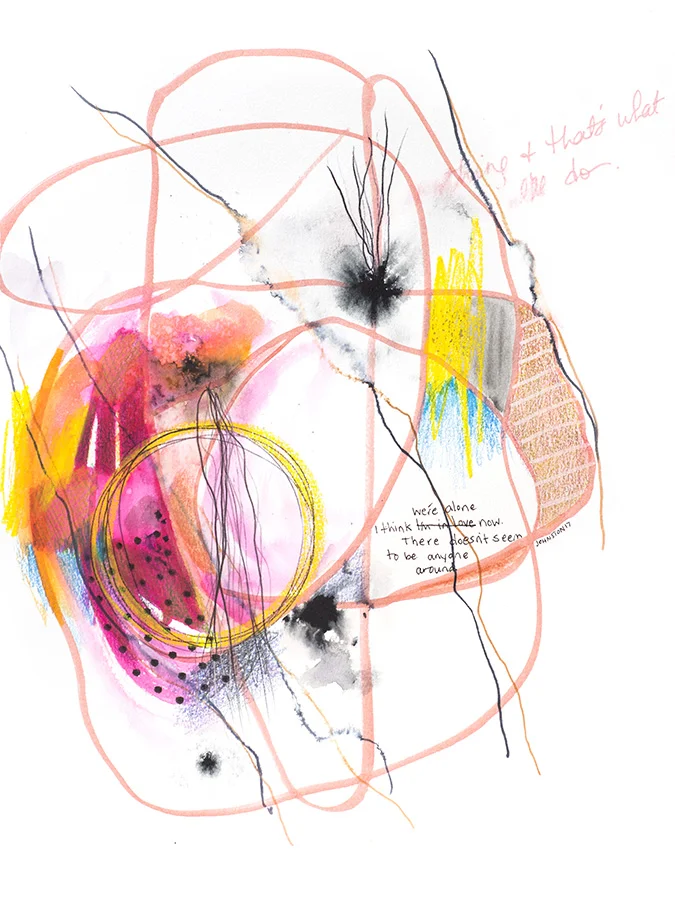 thing & that's what
we do.
we're alone
I think I'm in love now.
There doesn't seem
to be anyone
around
JOHNSTON17